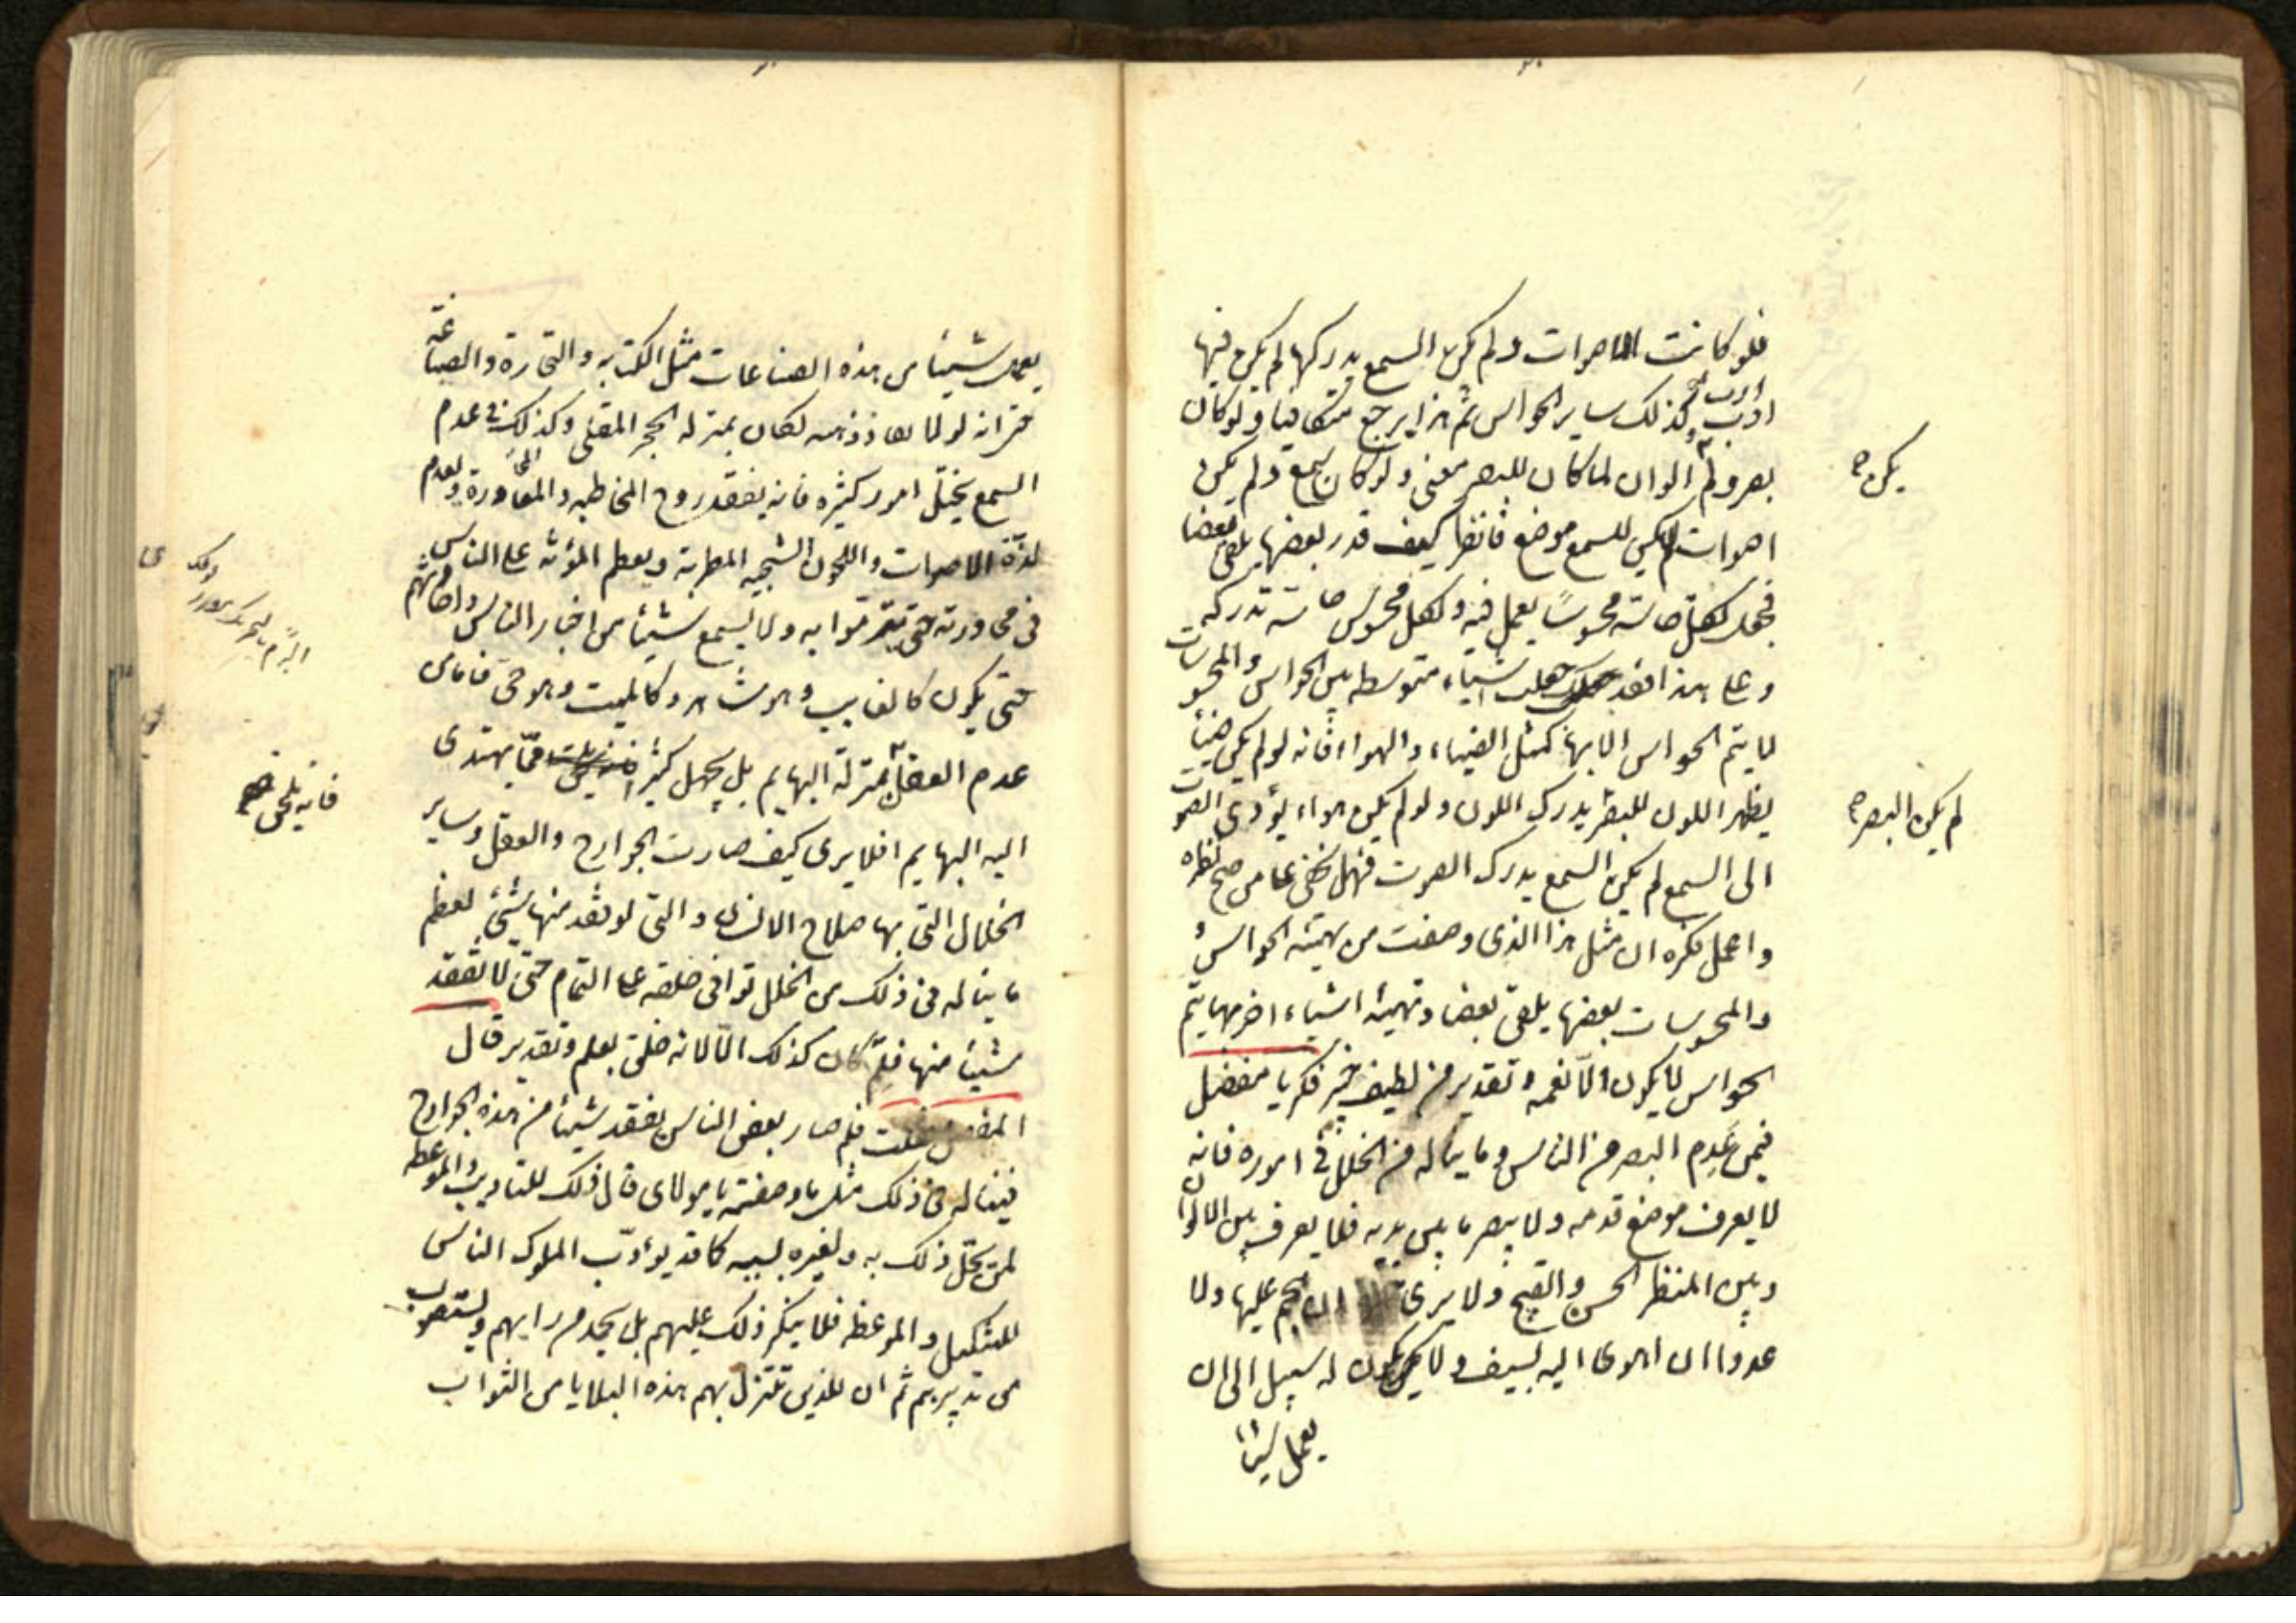 فلو كانت الاصوات ولم يكن السمع يدركها لم يكن فيها
ارب وكذلك ساير الحواس ثم هذا يرجع متكافيا ولو كان
بصر ولم الوان لما كان للبصر معنى ولو كان سمع ولم يكن
يكن
اصوات لم يكن للسمع موضع فانظر كيف قدر بعضها يلقى بعضا
فجعل لكل حاسة محسوسًا يعمل فيه ولكل محسوس حاسة تدركه
وعلى هذا فقد جعلت اشياء متوسطه بين الحواس والمحسوسات
لا يتم الحواس الا بها كمثل الضياء والهواء فانه لو لم يكن ضياء
يظهر اللون للبصر يدرك اللون ولو لم يكن هواء يؤدى الصوت
لم يكن البصر
الى السمع لم يكن السمع يدرك الصوت فهل يخفى على من صح نظره
واعمل فكره ان مثل هذا الذى وصفت من تهيئه الحواس
والمحسوسات بعضها يلقى بعضا وتهيئه اشياء اخر بها يتم
الحواس لا يكون الا بعمد وتقدير من لطيف خبير فكر يا مفضل
فيمن عَدِم البصر من الناس وما يناله من الخلل فى اموره فانه
لا يعرف موضع قدمه ولا يبصر ما بين يديه فلا يعرف بين الالوان
وبين المنظر الحسن والقبيح ولا يرى ان هجم عليها ولا
عدوا ان اهوى اليه بسيف ولا يكون له سبيل الى ان
يعمل شيئا
يعمل شيئا من هذه الصناعات مثل الكتابه والتجارة والصياغة
حتى انه لولا نفاذ ذهنه لكان بمنزله الحجر الملقى وكذلك من عدم
السمع يختل امور كثيره فانه يفقد روح المخاطبه والمحاورة ويعدم
لذّة الاصوات واللحون الشجيه المطربة ويعظم المؤنة على الناس
فى محاورته حتى يتبرموا به ولا يسمع شيئا من اخبار الناس واحاديثهم
حتى يكون كالغايب وهو شاهد وكالميت وهو حى فاما من
عدم العقل بمنزلة البهايم بل يجهل كثيرا ممّا يهتدى
فانه يلحق
اليه البهايم افلا يرى كيف صارت الجوارح والعقل وساير
الخلال التى بها صلاح الانسان والتى لو فقد منها شئ لعظم
ما يناله فى ذلك من الخلل توافى خلقه على التمام حتى لا تفقد
شيئا منها فلم كان كذلك الّا لانه خلق بعلم وتقدير قال
المفضل فقلت فلم صار بعض الناس يفقد شيئا من هذه الجوارح
فيناله من ذلك مثل ما وصفته يا مولاى قال ذلك للتاديب والموعظه
لمن يحل ذلك به ولغيره بسببه كما قد يؤدّب الملوك الناس
للتنكيل والموعظه فلا ينكر ذلك عليهم بل يحمد من رايهم ويستصوب
من تدبيرهم ثم ان للذين تنزل بهم هذه البلايا من الثواب